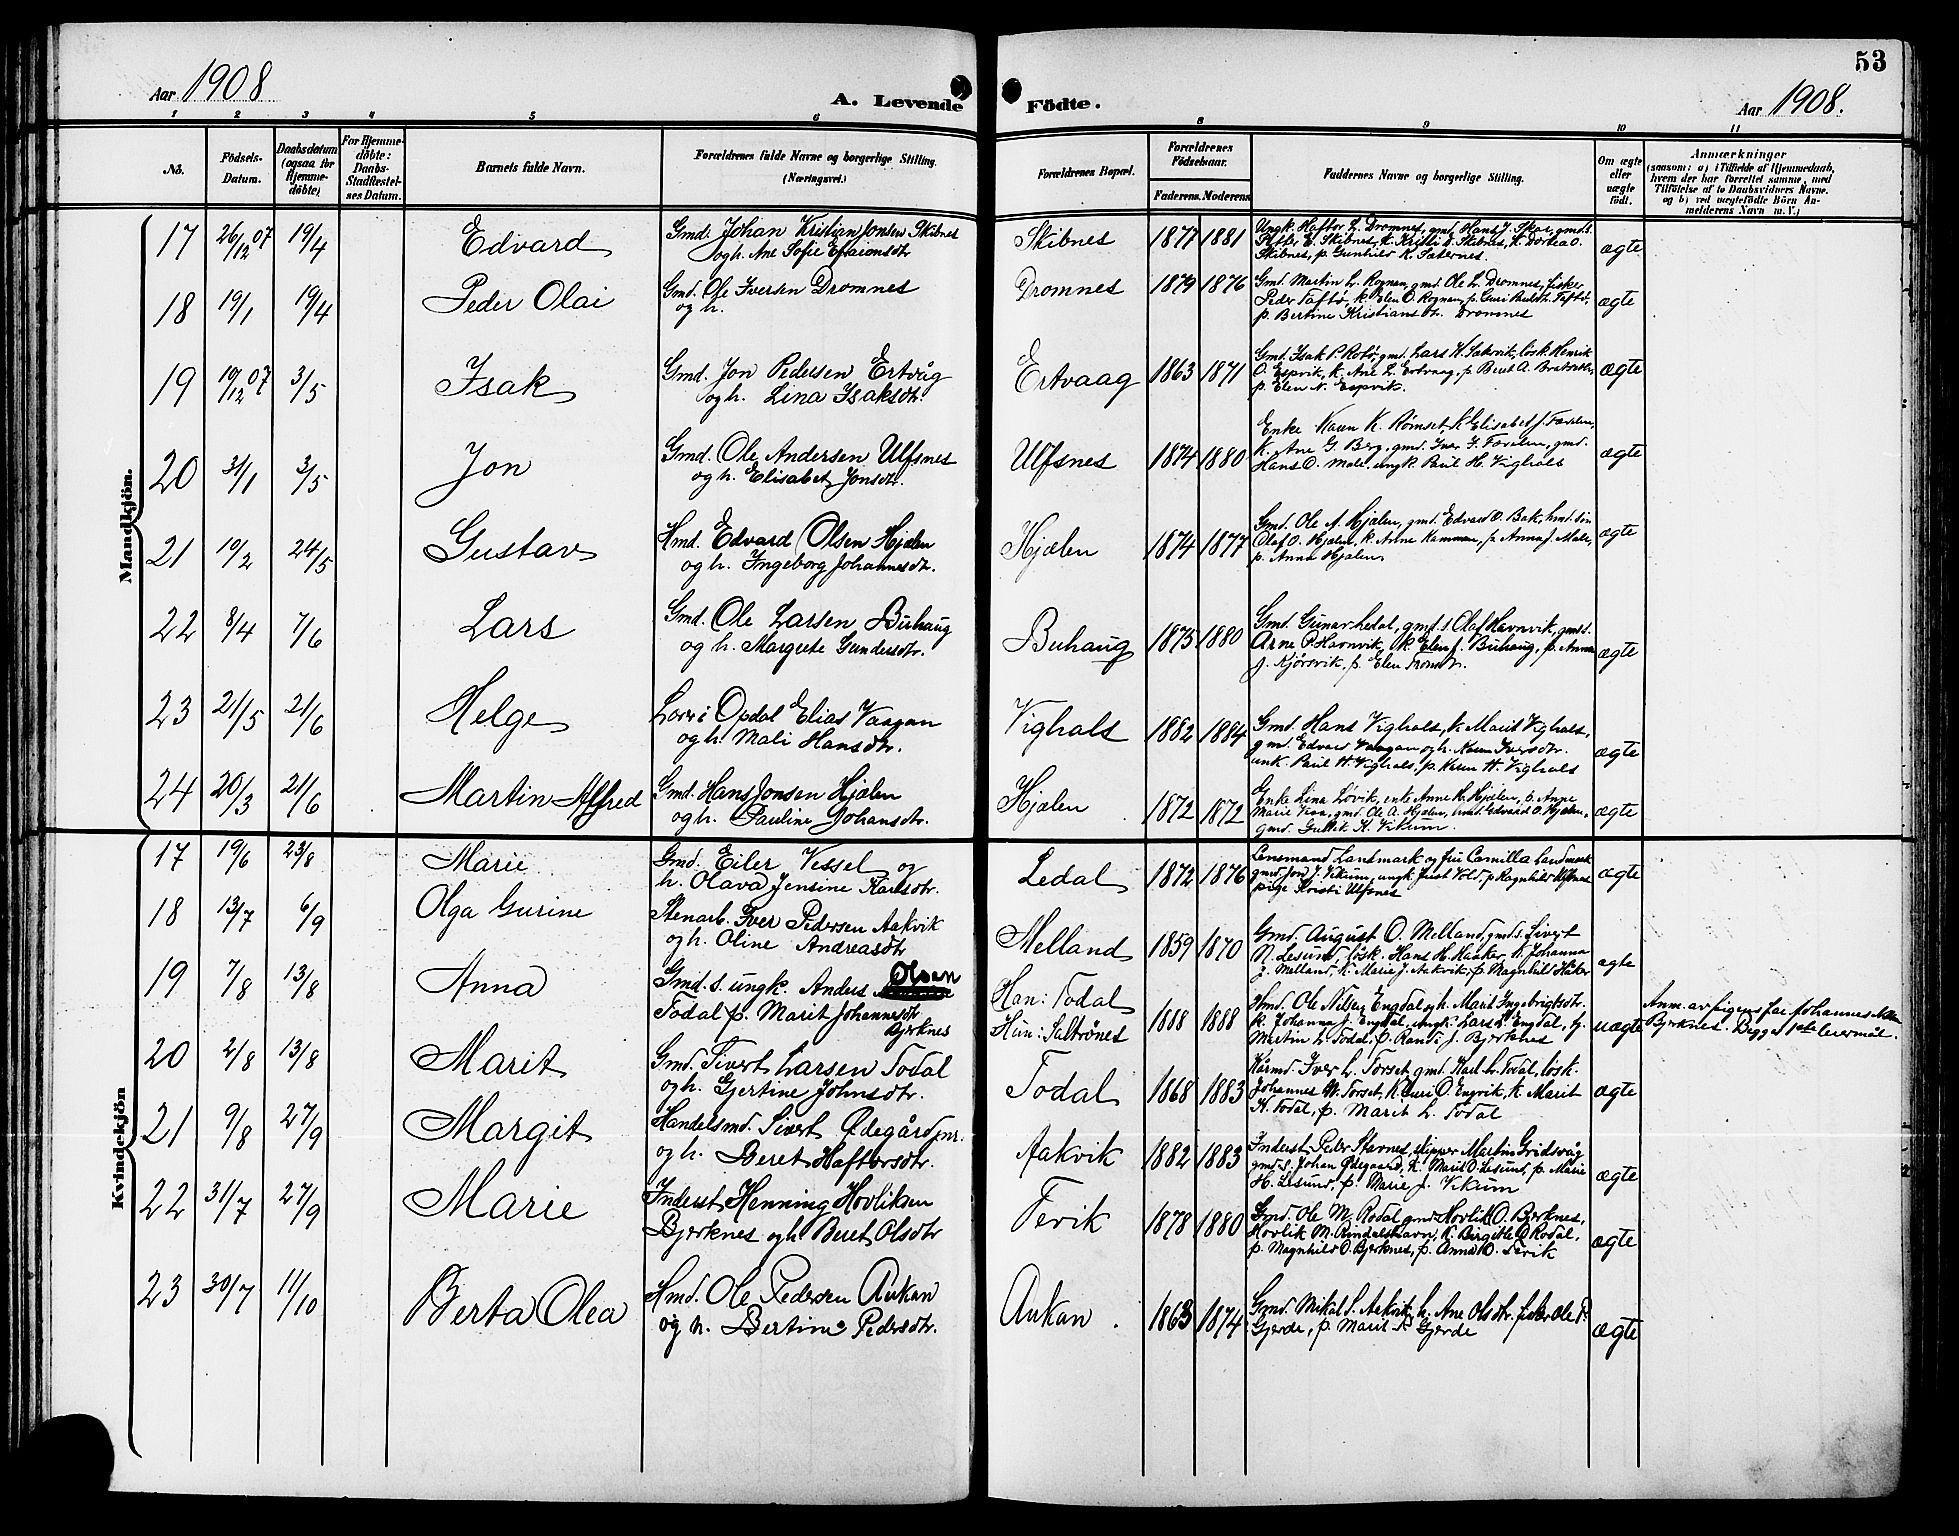 53
Aar 1908
A. Levende Födte.
Aar 1908.
1 2 3 4 5 6 8 9 10 11
No.
Födsels-Datum.
Daabsdatum (ogsaa for Hjemme-döbte)
For Hjemme-döbte: Daabs-Stadfæstel-ses Datum.
Barnets fulde Navn.
Forældrenes fulde Navne og borgerlige Stilling. (Næringsvei.)
Forældrenes Bopæl.
Forældrenes Födselsaar.
Faderens. Moderens.
Faddernes Navne og borgerlige Stilling.
Om ægte eller uægte født.
Anmærkninger
(saasom: a) i Tilfælde af Hjemmedaab,
hvem der har forrettet samme, med
Tilföielse af to Daabsvidners Navne.
og b) ved uægtefödte Börn An-
melderens Navn m. V.)
Mandkjön.
17 26/12 07 19/4 Edvard Gmd. Johan Kristian Jonsen Skibnes
og h. Ane Sofie
Skibnes 1877 1881 Ungk. Haftor L. Dromnes, gmd. Hans J. Skar, gmd.s.
Skibnes, k. Kristi Skibnes, k. Dortea O.
Skibnes, p. Gunhild K. Sæternes. ægte
18 19/1 19/4 Peder Olai Gmd. Ole Iversen Dromnes
og h.
Dromnes 1879 1876 Gmd. Martin L. Rognan, gmd. Ole L. Dromnes, fisker
Peder Taftø, k. Elen O. Rognan, p. Guri Taftø,
p. Bertine Kristiansdtr. Dromnes ægte
19 19/12 07 3/5 Isak Gmd. Jon Pedersen Ertvåg
og h. Lina Isaksdtr.
Ertvaag 1863 1871 Gmd. Isak P. gmd. Lars K. løsk. Henrik
O. Espvik, k. Ane L. Ertvaag, p. Beret A.
p. Elen N. Espvik. ægte
20 3/1 3/5 Jon Gmd. Ole Andersen Ulfsnes
og h. Elisabet Jonsdtr.
Ulfsnes 1874 1880 Enke Karen K. Rømset, k. Elisabet J.
k. Ane G. Berg, gmd. Ivar J. gmd.
Hans O. Male, ungk. Paul H. Vighals ægte
21 19/2 24/5 Gustav Hmd. Edvard Olsen Hjælen
og h. Ingeborg Johannesdtr.
Hjælen 1874 1877 Gmd. Ole A. Hjælen, gmd. Edvard O. Bak, hmd. søn
Olaf O. Hjælen, k. Anne Kamman, p. Anna J. Male,
p. Anna Hjælen. ægte
22 8/4 7/6 Lars Gmd. Ole Larsen Buhaug
og h. Margrete Gundersdtr.
Buhaug 1875 1880 Gmd. Gunar Ledal, gmd.s. Olaf Havnvik, gmd.s.
Arne P. Havnvik, k. Elen J. Buhaug, p. Anna
J. Kjørsvik, p. Elen ægte
23 21/5 21/6 Helge Elias Vaagan
og h. Mali Hansdtr.
Vighals 1882 1884 Gmd. Hans Vighals, k. Marit Vighals,
gmd. Edvard Vaagan og h. Karen Iversdtr.
unk. Paul H. Vighals, p. Karen H. Vighals ægte
24 20/3 21/6 Martin Alfred Gmd. Hans Jonsen Hjælen
og h. Pauline Johansdtr.
Hjælen 1872 1872 Enke Lina Løvik, enke Anne K. Hjælen, p. Anne
Marie gmd. Ole A. Hjælen, hmd. Edvard O. Hjælen,
gmd. Gullik K. Vikum. ægte
Kvindekjön
17 19/6 23/8 Marie Gmd. Eiler Vessel og
h. Olava Jensine Karlsdtr.
Ledal 1872 1876 Lensmand Landmark og fru Camilla Landmark
gmd. Jon J. Vikum, ungk. Just Vold, p. Ragnhild Ulfsnes
pige Kristi Ulfsnes ægte
18 13/7 6/9 Olga Gurine Stenarb. Iver Pedersen Aakvik
og h. Oline Andreasdtr
Melland 1859 1870 Gmd. August O. Melland, gmd.s. Sivert
N. Lesund, løsk. Hans H. k. Johanna
J. Melland, k. Marie J. Aakvik, p. Magnhild ægte
19 7/8 13/8 Anna Gmd.s. ungk. Anders Olsen
Todal p. Marit Johannesdtr
Bjerknes
Han: Todal
Hun: Saltrönes 1888 1888 Hmd. Ole Nilsen Engdal og h. Marit Ingebrigtsdtr.
k. Johanna J. Engdal, ungk. Lars Engdal, fj.
Martin L. Todal, p. Randi J. Bjerknes uægte
Anm. av pigens far Johannes
Bjerknes. Begges 1ste leiermål.
20 2/8 13/8 Marit Gmd. Sivert Larsen Todal
og h. Gjertine Johnsdtr.
Todal 1868 1883 Kårmd. Iver L. Torset, gmd. Karl L. Todal, løsk.
Johannes M. Torset, k. Guri O. Engvik, k. Marit
K. Todal, p. Marit L. Todal ægte
21 9/8 27/9 Margit Handelsmd. Sivert Ødegård jnr.
og h. Beret Haftorsdtr.
Aakvik 1882 1883 Inderst Peder Stavnes, skipper Martin Gridsvåg
gmd.s. Johan Ødegaard, k. Marit O. Lesund, p. Marie
H. Lesund, p. Marie J. Vikum ægte
22 31/7 27/9 Marie Inderst Henning Hovliksen
Bjerknes og h. Beret Olsdtr
Tevik 1878 1880 Gmd. Ole M. Rodal, gmd. Hovlik O. Bjerknes,
Hovlik M. Rindalshavn, k. Birgitte O. Rodal,
p. Magnhild O. Bjerknes, p. Anna O. Tevik ægte
23 30/7 11/10 Berta Olea Hmd. Ole Pedersen Aukan
og h. Bertine Pedersdtr.
Aukan 1863 1874 Gmd. Mikal S. Aakvik, h. Ane Olsdtr. fisker Ole P.
Gjerde, p. Marit Gjerde ægte